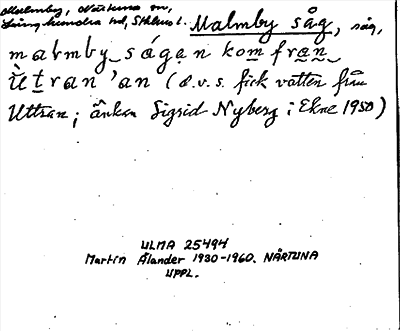 Malmby, Närtuna sn,
Långhundra hd, Sthlms l. Malmby såg, såg,
malmby sågen kom fran
Ùtran 'an (d.v.s. fick vatten från
Uttran; änkan Sigrid Nyberg i Ekne 1950)
ULMA 25494
Martin Ålander 1930-1960. NÄRTUNA
UPPL.